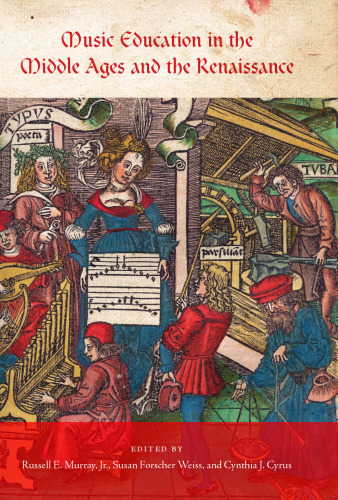 Music Education in the
Middle Ages and the Renaissance
TYPVS
poeta
TVBA
EDITED BY
Russell E. Murray, Jr., Susan Forscher Weiss, and Cynthia J. Cyrus